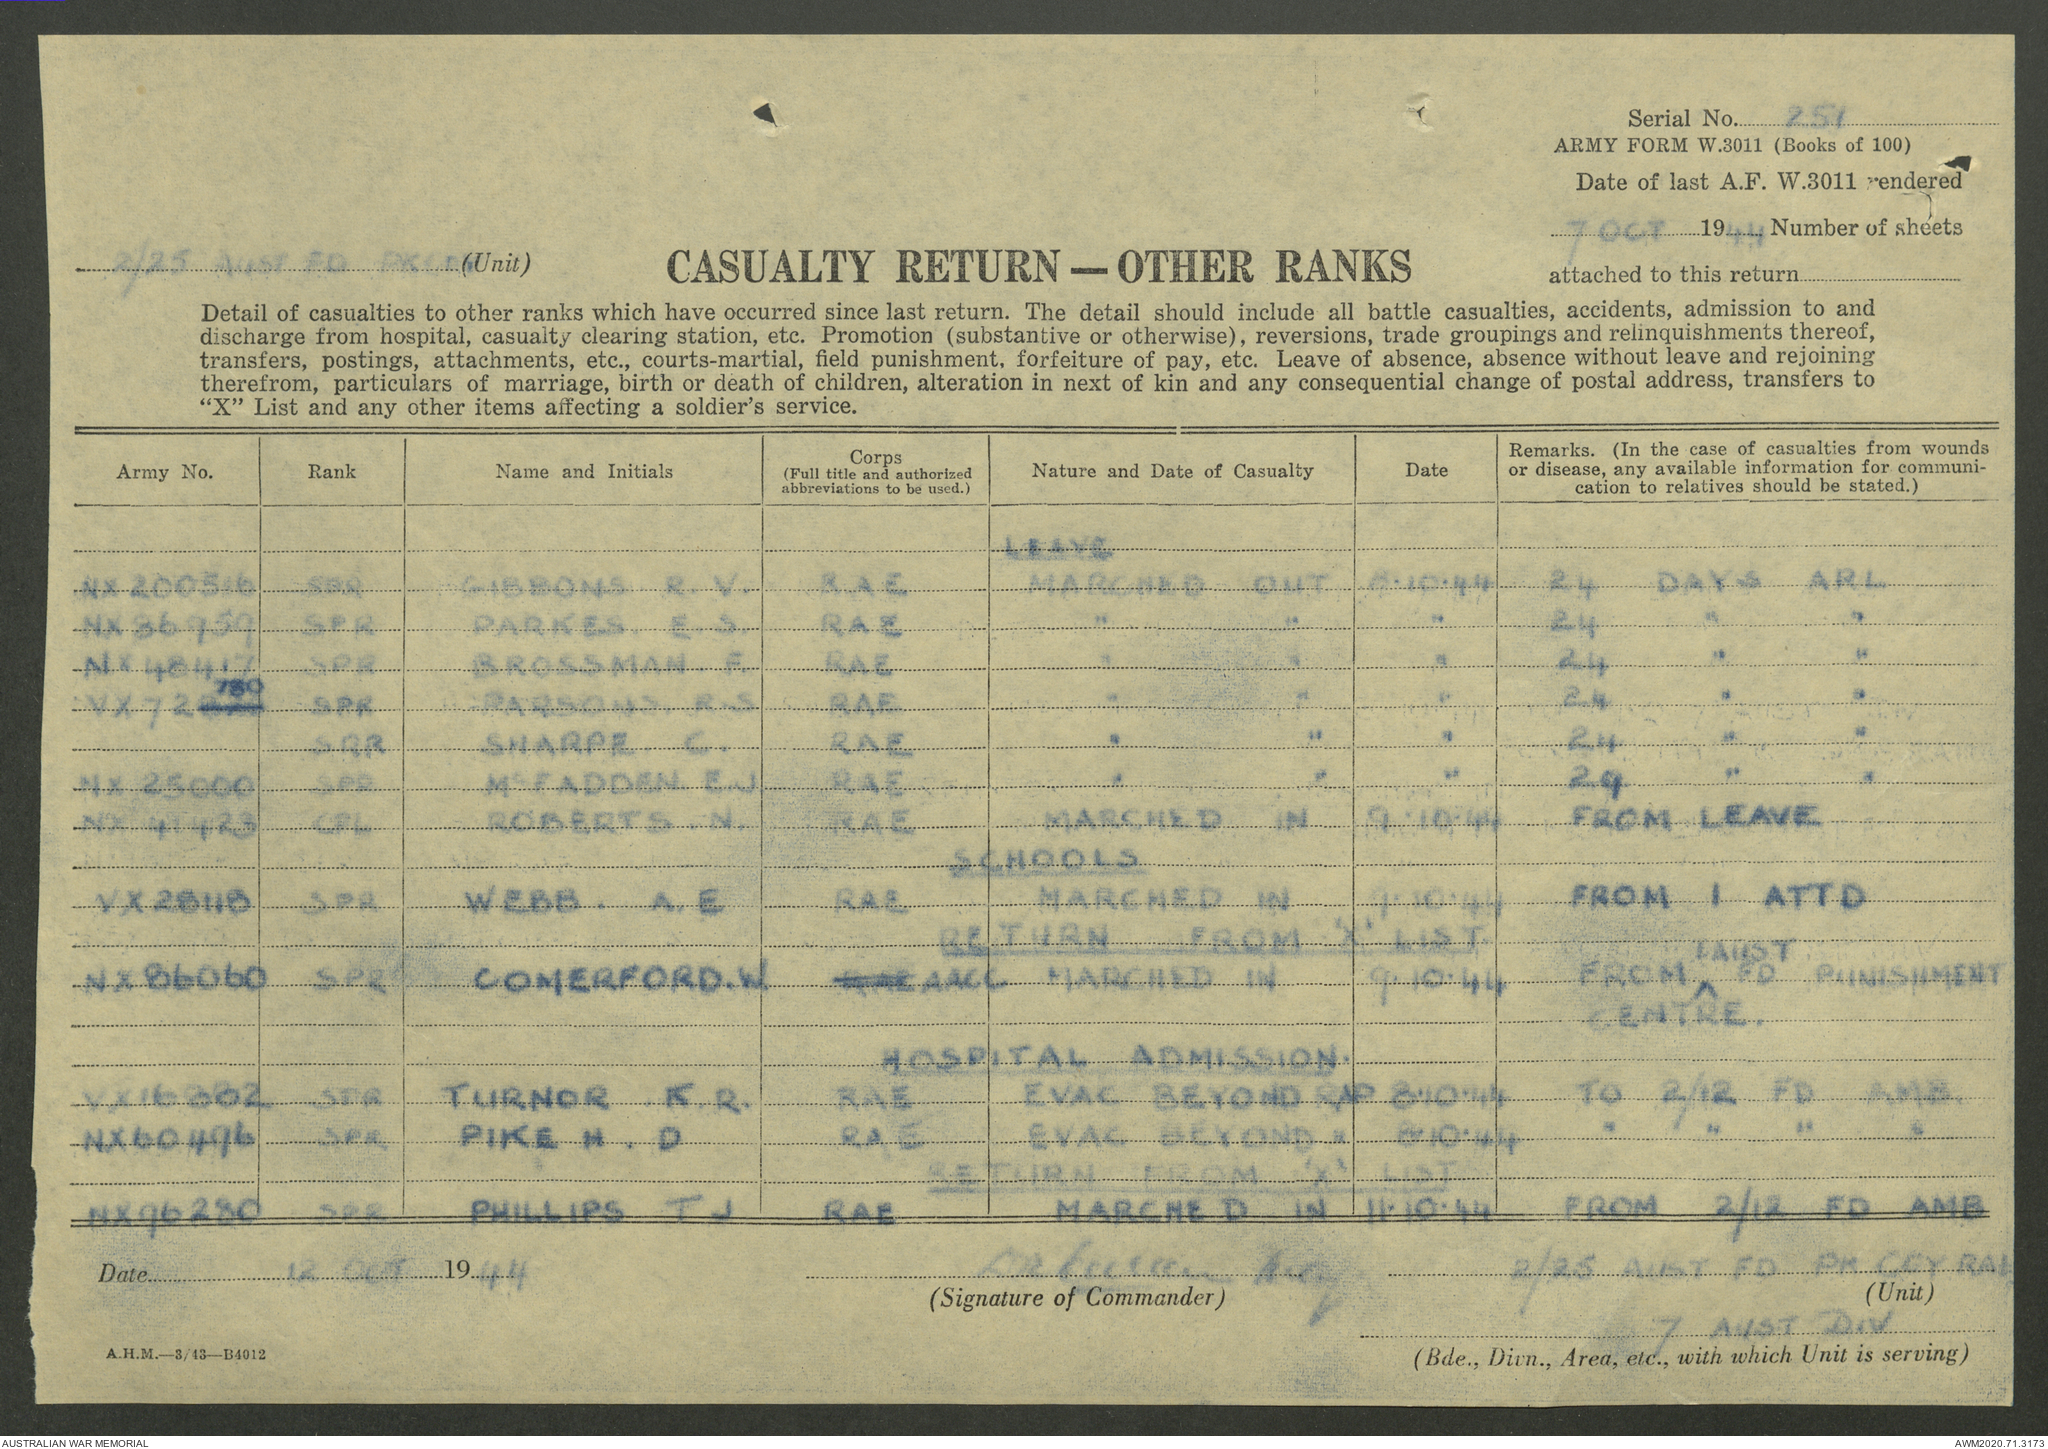 Serial No. 251
ARMY FORM W.3011 (Books of 100)
Date of last A.F. W.3011 rendered
7 OCT 1944 Number of sheets
attached to this return
2/25 AUST FD PK (Unit)
CASUALTY RETURN — OTHER RANKS
Detail of casualties to other ranks which have occurred since last return. The detail should include all battle casualties, accidents, admission to and
discharge from hospital, casualty clearing station, etc. Promotion (substantive or otherwise), reversions, trade groupings and relinquishments thereof,
transfers, postings, attachments, etc., courts-martial, field punishment, forfeiture of pay, etc. Leave of absence, absence without leave and rejoining
therefrom, particulars of marriage, birth or death of children, alteration in next of kin and any consequential change of postal address, transfers to
"X" List and any other items affecting a soldier's service.
Army No. Rank Name and Initials Corps (Full title and authorized abbreviations to be used.) Nature and Date of Casualty Date Remarks. (In the case of casualties from wounds or disease, any available information for communi- cation to relatives should be stated.)
LEAVE
NX200516 SPR GIBBONS R.V. RAE MARCHED OUT 8·10·44 24 DAYS ARL
NX86959 SPR PARKES. E.S. RAE " " " 24 " "
NX48417 SPR BROSSMAN. F. RAE " " " 24 " "
VX72780 SPR PARSONS. R.S RAE " " " 24 " "
SPR SHARPE. C. RAE " " " 24 " "
NX25000 SPR McFADDEN E.J RAE " " " 29 " "
NX41423 CPL ROBERTS. N. RAE MARCHED IN 9·10·44 FROM LEAVE
SCHOOLS
VX28118 SPR WEBB. A.E RAE MARCHED IN 9·10·44 FROM 1 ATTD
RETURN FROM 'X' LIST
NX86060 SPR COMERFORD. W RAE AACC MARCHED IN 9·10·44 FROM 1 AUST FD PUNISHMENT
CENTRE.
HOSPITAL ADMISSION.
VX16802 SPR TURNOR K.R. RAE EVAC BEYOND RAP 8·10·44 TO 2/12 FD AMB.
NX60496 SPR PIKE H. D RAE EVAC BEYOND " 8·10·44 " " " "
RETURN FROM 'X' LIST
NX96280 SPR PHILLIPS T J RAE MARCHED IN 11·10·44 FROM 2/12 FD AMB
Date 12 OCT 1944
(Signature of Commander)
2/25 AUST FD PK COY RAE
(Unit)
7 AUST DIV
(Bde., Divn., Area, etc., with which Unit is serving)
A.H.M.—3/43—B4012
AUSTRALIAN WAR MEMORIAL
AWM2020.71.3173